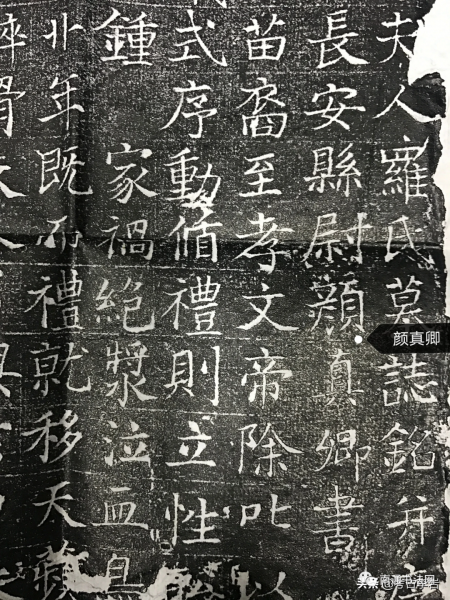 夫人羅氏墓誌銘并
長安縣尉顏真卿書
苗裔至孝文帝除叱以
式序動循禮則立性
鍾 家禍絕漿泣血
丱年既而禮就移天
颜真卿
头条
书法网